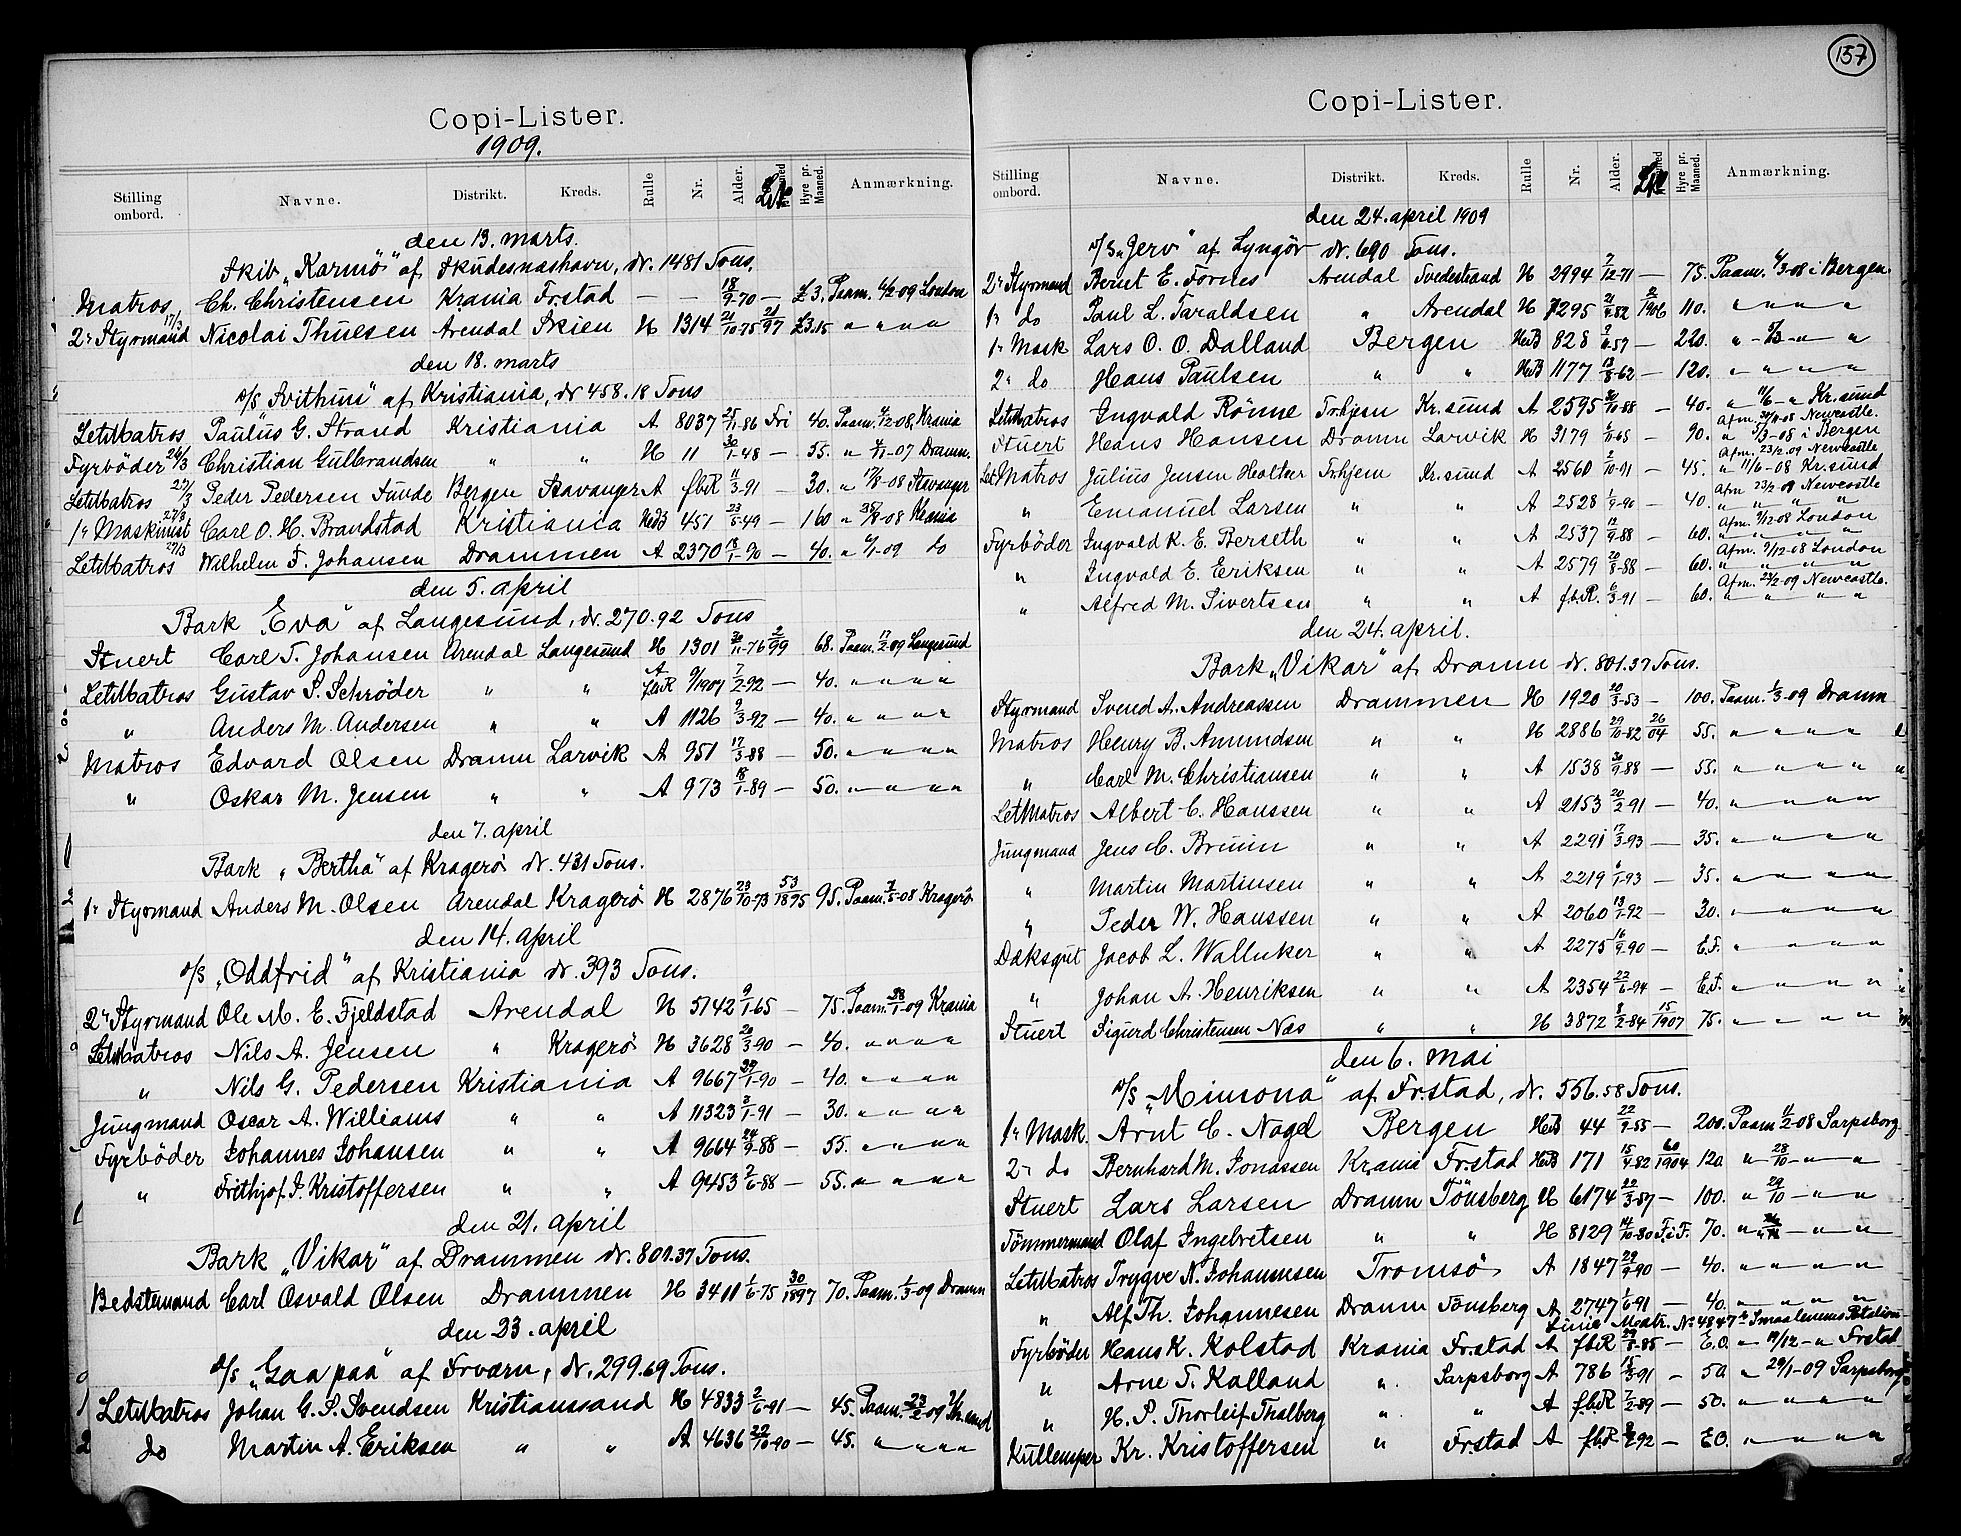 Copi-Lister.
1909.
Stilling ombord. Navne. Distrikt. Kreds. Rulle Nr. Alder. Hyre pr. Maaned. Anmærkning.
den 13. marts.
Skib „Karmö" af Skudesnæshavn, dr. 1481 Tons.
Matros Ch. Christensen Krania Frstad — — 18/9-70 — £3. Paam. 6/2-09 London
2n Styrmand 17/3 Nicolai Thuesen Arendal Skien H 1314 21/10-75 21/97 £3.15 " " " "
den 18. marts
D/S Svithun" af Kristiania, dr 458.18 Tons
LetMatros Paulus G. Strand Kristiania A 8037 25/11-86 Fri 40. Paam. 4/12-08, Krania
Fyrböder 26/3 Christian Gulbrandsen " " H 11 30/1-48 — 55. " 4/11-07 Dramn.
LetMatros 27/3 Peder Pedersen Funde Bergen Stavanger A fbR 11/3-91 — 30. " 17/8-08 Stavanger
1n Maskinist 27/3 Carl O. H. Brandstad Kristiania HdB 451 23/5-49 — 160 " /8-08 Krania
LetMatros 27/3 Wilhelm F. Johansen Drammen A 2370 18/1-90 — 40. " 4/1-09 do
den 5. april
Bark Eva" af Langesund, dr. 270.92 Tons
Stuert Carl T. Johansen Arendal Langesund H 1301 30/11-76 2/99 68. Paam. 17/2-09 Langesund
LetMatros Gustav S. Schrøder " " A fbR 9/1907 7/2-92 — 40. " " " "
" Anders M. Andersen " " A 1126 9/3-92 — 40. " " " "
Matros Edvard Olsen Dramn Larvik A 951 17/3-88 — 50. " " " "
" Oskar M. Jensen " " A 973 18/1-89 — 50. " " " "
den 7. april
Bark „Bertha" af Kragerö dr. 431 Tons.
1n Styrmand Anders M. Olsen Arendal Kragerö H 2876 23/10-73 53/1895 95. Paam. 7/5-08 Kragerö
den 14. april
D/S „Oddfrid" af Kristiania dr. 393 Tons.
2n Styrmand Ole M. E. Fjeldstad Arendal H 5142 9/1-65 — 75. Paam. /1-09 Krania
LetMatros Nils A. Jensen " Kragerö H 3628 20/3-90 — 40. " " " "
" Nils G. Pedersen Kristiania A 9667 /1-90 — 40. " " " "
Jungmand Oscar A. Williams " " A 11323 3/1-91 — 30. " " " "
Fyrböder Johannes Johansen " " A 9664 24/9-88 — 55. " " " "
" Frithjof J. Kristoffersen " " A 9453 2/6-88 — 55. " " " "
den 21. april
Bark „Vikar" af Drammen dr. 801.37 Tons.
Bedstemand Carl Osvald Olsen Drammen H 3411 1/6-75 30/1897 70. Paam. 1/3-09 Dramn
den 23. april
D/S „Gaa paa" af Frværn, dr. 299.69 Tons.
LetMatros Johan G. S. Svendsen Kristianssand H 4833 2/6-91 — 45. Paam. 23/2-09
do Martin A. Eriksen " " A 4636 22/10-90 — 45. " " " "
157
Copi-Lister.
Stilling ombord. Navne. Distrikt. Kreds. Rulle Nr. Alder. Hyre pr. Maaned. Anmærkning.
den 24. april 1909
D/S „Jerv" af Lyngör dr. 690 Tons.
2n Styrmand Bernt E. Fornes Arendal Tvedestrand H 2994 7/12-71 — 75. Paam. 4/3-08 i Bergen.
1n do Paul L. Taraldsen " Arendal H 7295 21/9-82 2/1906 110. " " " "
1n Mask Lars O. O. Dalland Bergen HdB 828 9/6-57 — 220. " " "
2n do Hans Paulsen " " HdB 1177 13/8-62 — 120. " " " "
LetMatros Ingvald Rönne Trhjem Kr.sund A 2595 30/10-88 — 40. " 11/6 - " Kr.sund
Afm. /11-08 Newcastle.
Stuert Hans Hansen Dramn Larvik H 3179 6/11-65 — 90. " 5/3-08 i Bergen
Afm. 23/2-09 Newcastle
LetMatros Julius Jensen Holter Trhjem Kr.sund A 2560 2/10-91 — 45. " 11/6-08 Kr.sund
Afm 23/2-09 Newcastle
" Emanuel Larsen " " A 2528 1/9-90 — 40. " " " "
Afm. 9/12-08 London
Fyrböder Ingvald K. E. Berseth " " A 2537 12/9-88 — 60. " " " "
Afm. 9/12-08 London
" Ingvald E. Eriksen " " A 2579 20/8-88 — 60. " " " "
Afm. 23/2-09 Newcastle.
" Alfred M. Sivertsen " " A fb.R. 6/3-91 — 60. " " " "
den 24. april.
Bark „Vikar" af Dramn dr. 801.37 Tons.
Styrmand Svend A. Andreassen Drammen H 1920 20/3-53 — 100. Paam. 1/3-09 Dramn
Matros Henry B. Amundsen " " H 2886 29/10-82 26/04 55. " " " "
" Carl M. Christiansen " " A 1538 30/9-88 — 55. " " " "
LetMatros Albert C. Hanssen " " A 2153 20/2-91 — 40. " " " "
Jungmand Jens C. Bruun " " A 2291 17/3-93 — 35. " " " "
" Martin Martinsen " " A 2219 6/1-93 — 35. " " " "
" Peder W. Hanssen " " A 2060 13/1-92 — 30. " " " "
Dæksgut Jacob L. Wallnker " " A 2275 16/9-90 — E.F. " " " "
" Johan A. Henriksen " " A 2354 22/6-94 — E.F. " " " "
Stuert Sigurd Christensen Næs " " H 3872 8/2-84 15/1907 75. " " " "
den 6. mai
D/S „Minsona" af Fr.stad, dr. 556.58 Tons.
1n Mask. Arnt C. Nagel Bergen HdB 44 22/9-55 — 200. Paam 11/2-08 Sarpsborg
2n do Bernhard M. Jonassen Krania Fr.stad HdB 171 15/4-82 60/1904 120. " 28/10 — " "
Stuert Lars Larsen Dramn Tönsberg H 6174 22/3-57 — 100. " 29/10 — " "
Tömmermand Olaf Ingebretsen " " H 8129 14/10-80 F.i F. 70. " — " "
LetMatros Trygve N. Johannesen Tromsö A 1847 29/9-90 — 40. " " " "
" Alf Th. Johannesen Dramn Tönsberg A 2747 1/6-91 — 40. " " " "
Linie Matr. No 4847 Smaalenenes
Fyrböder Hans K. Kolstad Krania Fr.stad A fbR 29/8-85 — E.O. " 19/12 - " Frstad
" Arne T. Kalland " Sarpsborg A 786 15/3-91 — 50. " 29/1-09 Sarpsborg
" H. P. Thorleif Thalberg " " A fbR 7/2-89 — 50. " " " "
Kullemper Kr. Kristoffersen " Fr.stad A fbR 2-92 — E.O. " " " "